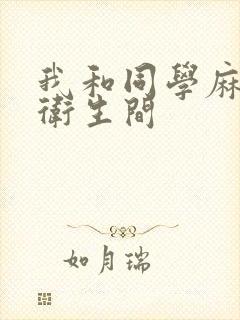 我和同學麻
衛生間
如月瑞